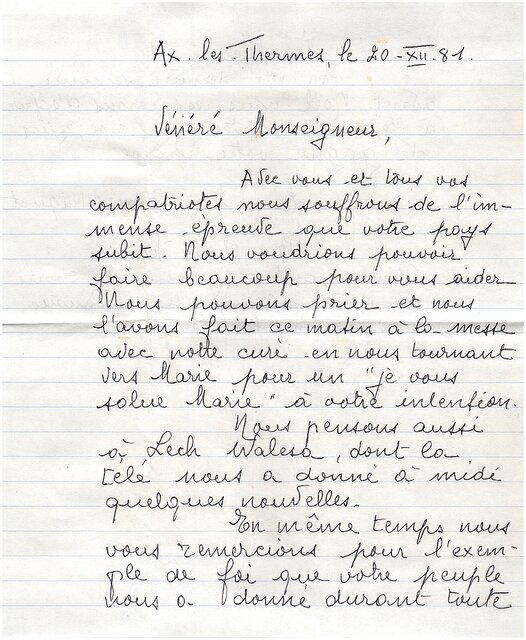 Ax-les-Thermes, le 20-XII-81.
Vénéré Monseigneur,
Avec vous et tous vos
compatriotes nous souffrons de l'im-
mense épreuve que votre pays
subit. Nous voudrions pouvoir
faire beaucoup pour vous aider
Nous pouvons prier et nous
l'avons fait ce matin à la messe
avec notre curé en nous tournant
vers Marie pour un "je vous
salue Marie" à votre intention.
Nous pensons aussi
à Lech Walesa, dont la
télé nous a donné à midi
quelques nouvelles.
En même temps nous
vous remercions pour l'exem-
ple de foi que votre peuple
nous a donné durant toute